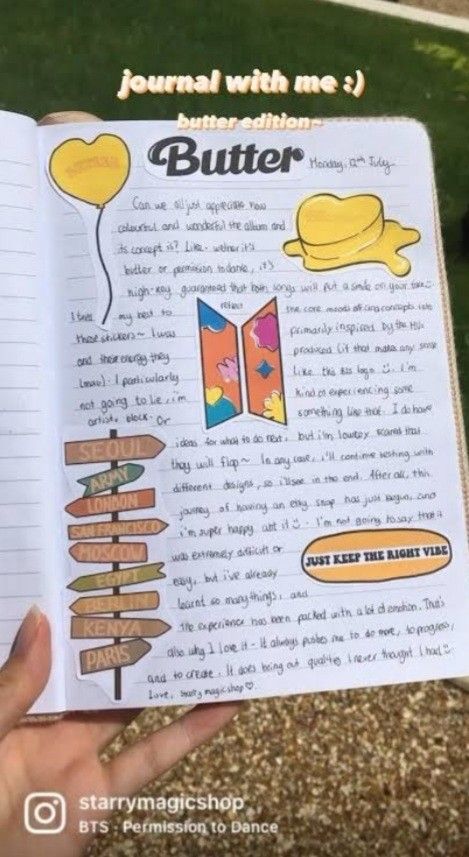 journal with me :)
butter edition~
Butter
Monday, 12th July
Can we all just appreciate how
colourful and wonderful the album and
its concept is? Like, wether it's
butter or permission to dance, it's
high-key guaranteed that both songs will put a smile on your face
I tried my best to reflect the core mood of concepts into
these stickers~ I was primarily inspired by the
and their energy they produced (if that makes any sense
lmao). I particularly like this BTS logo. I'm
not going to lie, i'm kind of experiencing some
artist block. Or something like that. I do have
ideas for what to do next, but i'm lowkey scared that
they will flop~ In any case, i'll continue testing with
different designs, so i'll see in the end. After all, this
journey of having an etsy shop has just begun, and
i'm super happy abt it. I'm not going to say that it
was extremely difficult or
easy, but i've already
learnt so many things, and
the experience has been packed with a lot of emotion. That's
also why I love it - it always pushes me to do more, to progress,
and to create. It does bring out qualities I never thought I had
Love, starrymagicshop♡.
SEOUL
ARMY
LONDON
SAN FRANCISCO
MOSCOW
EGYPT
BERLIN
KENYA
PARIS
JUST KEEP THE RIGHT VIBE
starrymagicshop
BTS · Permission to Dance